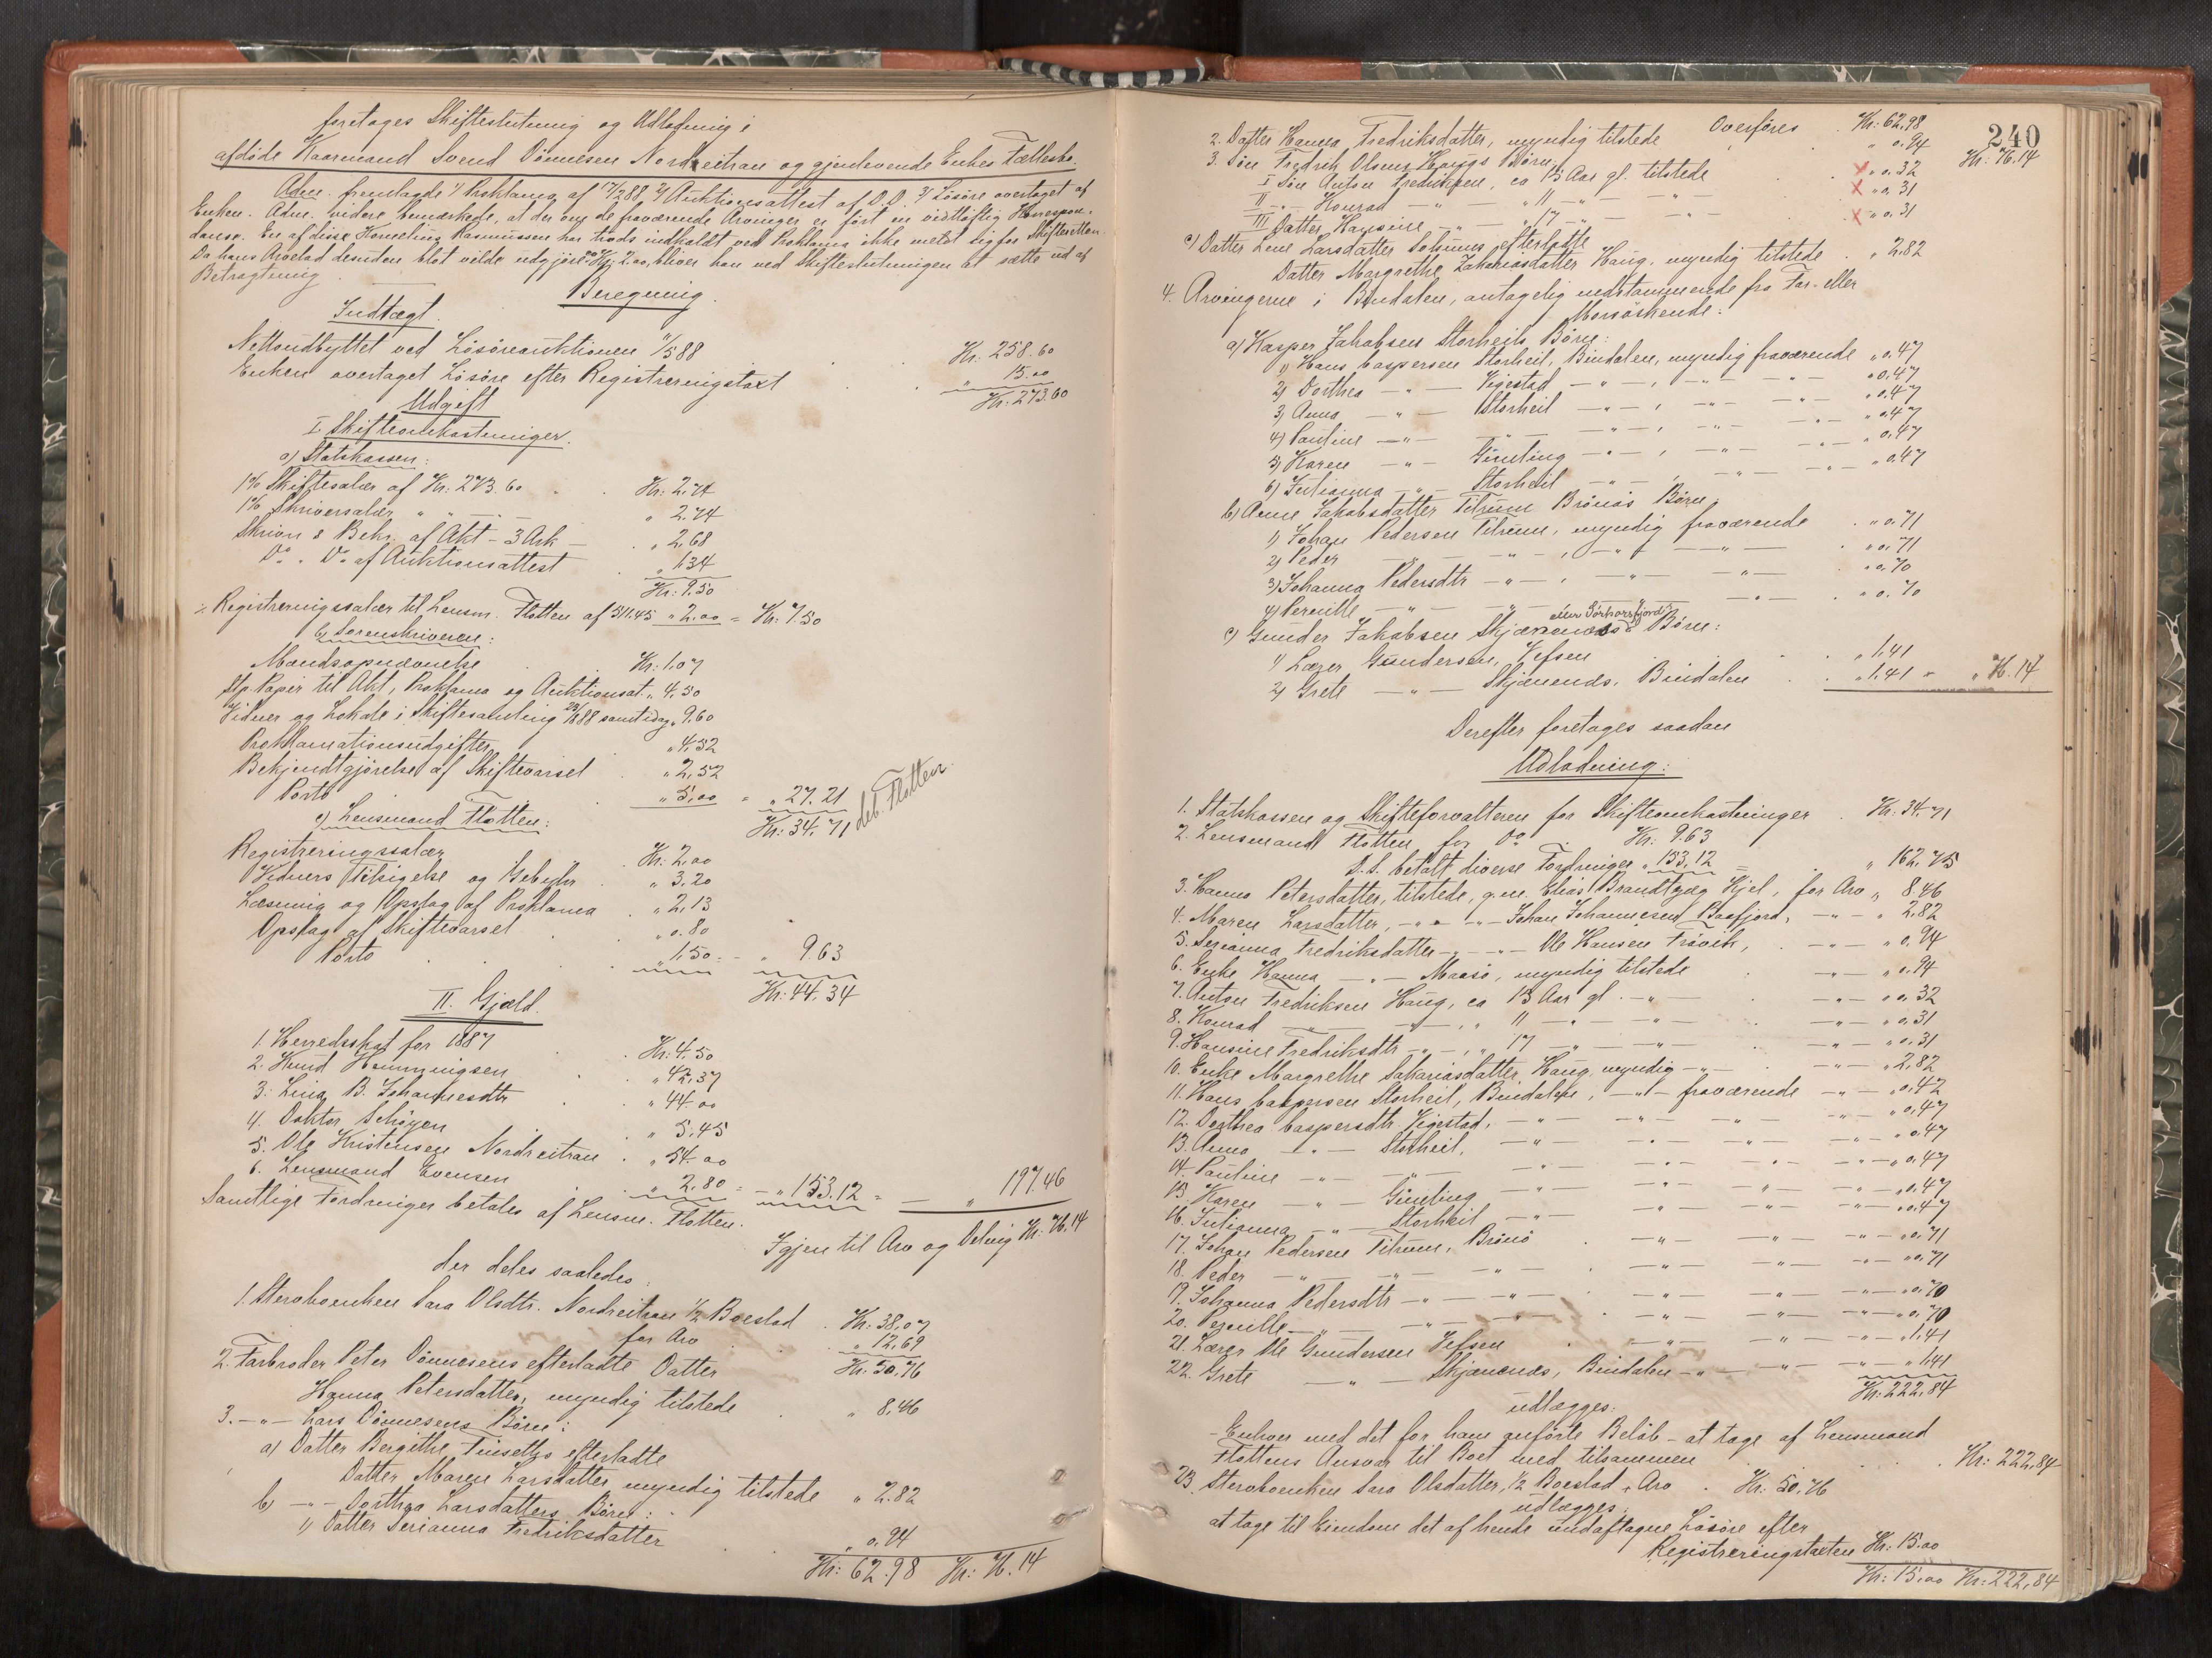 foretages Skifteslutning og Udlodning i
afdöde Kaarmand Svend Dönnesen Nordreitran og gjenlevende Enkes Fællesbo.
Adm. fremlagde 1/ Proklama af 17/2 88, 2/ Auktionsattest af D.D. 3/ Lösöre overtaget af
Enken. Adm. videre bemærkede, at der om de fraværende Arvinger er fört en vidtlöftig Korrespon-
dance. En af disse Kornelius Rasmussen har trods indkaldt ved Proklama ikke meldt sig for Skifteretten
Da hans Arvelod desuden blot vilde udgjöre Kr. 2.00, bliver han ved Skifteslutningen at sætte ud af
Betragtning
Beregning.
Indtægt.
Nettoudbyttet ved Lösöreauktionen 11/5 88 Kr. 258.60
Enken overtaget Lösöre efter Registreringstaxt " 15.00
Kr. 273.60
Udgift
I Skifteomkostninger.
a) Statskassen:
1% Skiftesalær af Kr. 273.60 Kr: 2,74
1% Skriversalær " " — " — " 2.74
Skrivn & Beh. af Akt - 3 Ark — " 2,68
Do " Do af Auktionsattest " 1.34
Kr. 9.50
÷ Registreringssalær til Lensm. Flotten af 511.45 " 2.00 = Kr: 7.50
b) Sorenskriveren:
Mandsopnævnelse Kr: 1.07
Stp. Papir til Akt, Proklama og Auktionsat. " 4.50
Vidner og Lokale i Skiftesamling 23/1 88 samt idag " 9.60
Proklamationsudgifter " 4,52
Bekjendtgjörelse af Skiftevarsel " 2,52
Porto " 5,00 = " 27.21
Kr: 34,71
deb. Flotten
c) Lensmand Flotten:
Registreringssalær Kr: 2,00
Vidners Tilsigelse og Gebyhr " 3,20
Læsning og Opslag af Proklama " 2,13
Opslag af Skiftevarsel " 0.80
Porto " 1,50 = " 9.63
Kr: 44.34
II. Gjæld.
1. Herredsskat for 1887 Kr: 4.50
2. Knud Hemmingsen " 42,37
3. Lina B. Johannesdtr " 44.00
4. Doktor Schöyen " 5,45
5. Ole Kristensen Nordreitran " 54.00
6. Lensmand Evensen " 2.80 = " 153.12 = " 197.46
Samtlige Fordringer betales af Lensm. Flotten.
Igjen til Arv og Deling Kr: 76.14
der deles saaledes:
1. Stervboenken Sara Olsdtr. Nordreitran 1/2 Boeslod Kr: 38,07
for Arv " 12,69
Kr: 50,76
2. Farbroder Peter Dönnesens efterladte Datter
Hanna Petersdatter, myndig tilstede " 8,46
3. — " — Lars Dönnesens Börn:
a) Datter Bergithe Finseths efterladte
Datter Maren Larsdatter myndig tilstede " 2.82
b) — " — Dorthea Larsdatters Börn:
1) Datter Serianna Fredriksdatter " 0.94
Kr: 62.98 Kr: 76.14
240
Overföres Kr: 62,98 Kr: 76.14
2. Datter Hanna Fredriksdatter, myndig tilstede " 0.94
3. Sön Fredrik Olsens Haugs Börn,
I Sön Anton Fredriksen, ca 13 Aar gl. tilstede x " 0.32
II — " — Konrad — " — " 11 — " — " x " 0.31
III Datter Hansine — " — " 17 — " — " x " 0.31
c) Datter Lene Larsdatter Solsems efterladte
Datter Margrethe Zakariasdatter Haug, myndig tilstede " 2.82
4. Arvingerne i Bindalen, antagelig nedstammende fra Far- eller
Morsöskende:
a) Kasper Jakobsen Storheils Börn:
1) Hans Caspersen Storheil, Bindalen, myndig fraværende " 0.47
2) Dorthea — " — Vigestad — " — , — " — — " — " 0.47
3) Anna — " — Storheil — " — , — " — — " — " 0.47
4) Pauline — " — — " — — " — , — " — — " — " 0.47
5) Karen — " — Gimling — " — , — " — — " — " 0.47
6) Julianna — " — Storheil — " — , — " — — " — " 0.47
b) Anne Jakobsdatter Tilrum Brönös Börn,
1) Johan Pedersen Tilrum, myndig fraværende " 0.71
2) Peder — " — — " — , — " — — " — " 0.71
3) Johanna Pedersdtr — " — , — " — — " — " 0.70
4) Pernille — " — — " — — " — " 0.70
c) Gunder Jakobsen Skjænenæs's eller Börn:
1) Lærer Gundersen, Vefsen " 1.41
2) Grete — " — Skjænenæs, Bindalen " 1,41 = " 76.14
Derefter foretages saadan
Udlodning:
1. Statskassen og Skifteforvalteren for Skifteomkostninger Kr: 34.71
2. Lensmand Flotten for Do Kr: 9.63
D.S. betalt diverse Fordringer " 153.12 = " 162,75
3. Hanna Petersdatter, tilstede, g.m. Elias Brandtzæg Kjel, for Arv " 8.46
4. Maren Larsdatter, — " — — " — Johan Johannesen Baafjord, — " — " 2.82
5. Serianna Fredriksdatter — " — — " — Ole Hansen Frövik, — " — " 0.94
6. Enke Hanna — " — Maasö, myndig tilstede — " — " 0.94
7. Anton Fredriksen Haug, ca 13 Aar gl. — " — — " — " 0.32
8. Konrad — " — — " — , " 11 — " — — " — — " — " 0.31
9. Hansine Fredriksdtr — " — , " 17 — " — — " — — " — " 0.31
10. Enke Margrethe Sakariasdatter Haug, myndig — " — — " — " 2.82
11. Hans Caspersen Storheil, Bindalen, — " — fraværende — " — " 0.47
12. Dorthea Caspersdtr Vigestad, — " — — " — — " — — " — " 0.47
13. Anna — " — Storheil, — " — — " — — " — — " — " 0.47
14. Pauline — " — — " — — " — — " — — " — — " — " 0.47
15. Karen — " — Gimling — " — — " — — " — — " — " 0.47
16. Julianna — " — Storheil — " — — " — — " — — " — " 0.47
17. Johan Pedersen Tilrum, Brönö — " — — " — — " — " 0.71
18. Peder — " — — " — — " — — " — — " — — " — " 0.71
19. Johanna Pedersdtr — " — — " — — " — — " — — " — " 0.70
20. Pernille — " — — " — — " — — " — — " — — " — " 0.70
21. Lærer Ole Gundersen Vefsen — " — — " — — " — " 1.41
22. Grete — " — Skjænenæs, Bindalen — " — — " — — " — " 1.41
Kr: 222,84
udlægges:
- Enhver med det for ham anförte Belöb - at tage af Lensmand
Flottens Ansvar til Boet med tilsammen Kr: 222,84
23. Stervboenken Sara Olsdatter, 1/2 Boeslod & Arv Kr: 50,76
udlægges:
at tage til Eiendom det af hende undaftagne Lösöre efter
Registreringstaxten Kr: 15.00
Kr: 15,00 Kr: 222,84